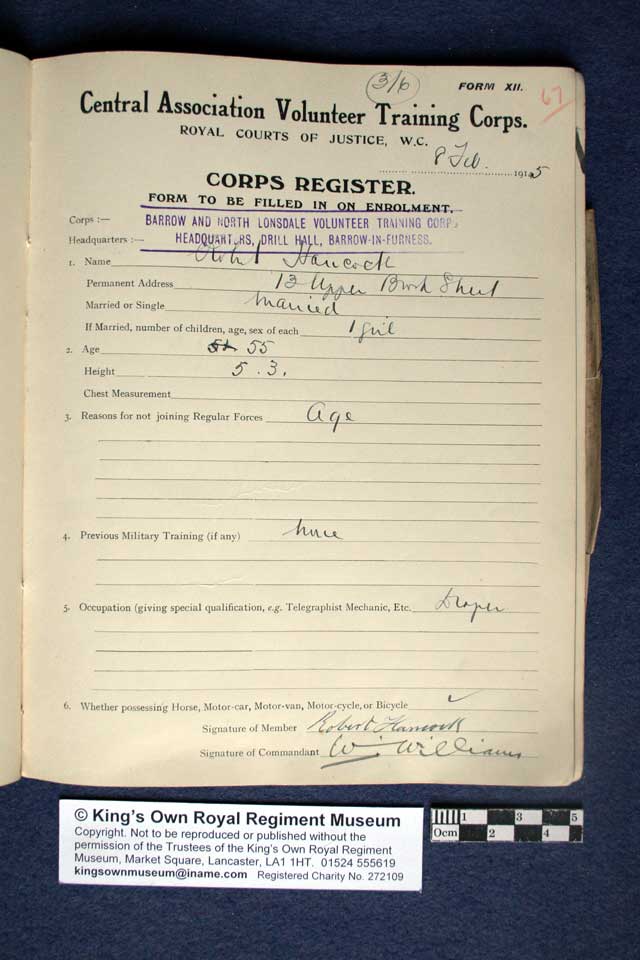 3/6 FORM XII. 67
Central Association Volunteer Training Corps.
ROYAL COURTS OF JUSTICE, W.C.
8 Feb. 1915
CORPS REGISTER.
FORM TO BE FILLED IN ON ENROLMENT.
Corps :— BARROW AND NORTH LONSDALE VOLUNTEER TRAINING CORPS
Headquarters :— HEADQUARTERS, DRILL HALL, BARROW-IN-FURNESS.
1. Name Robt Hancock
Permanent Address 13 Upper Street
Married or Single Married
If Married, number of children, age, sex of each 1 girl
2. Age 55
Height 5 . 3 .
Chest Measurement
3. Reasons for not joining Regular Forces Age
4. Previous Military Training (if any) None
5. Occupation (giving special qualification, e.g. Telegraphist Mechanic, Etc. Draper
6. Whether possessing Horse, Motor-car, Motor-van, Motor-cycle, or Bicycle ✓
Signature of Member Robert Hancock
Signature of Commandant W. Williams
© King's Own Royal Regiment Museum
Copyright. Not to be reproduced or published without the
permission of the Trustees of the King's Own Royal Regiment
Museum, Market Square, Lancaster, LA1 1HT. 01524 555619
kingsownmuseum@iname.com Registered Charity No. 272109
1 3 5
0cm 2 4